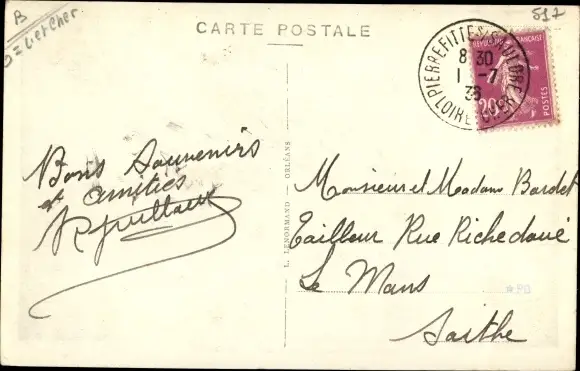 B
Loir et Cher
517
CARTE POSTALE
PIERREFITTE S/ SAULDRE
8 30
1 - 7
36
LOIR ET CHER
REPUBLIQUE FRANÇAISE
20c
POSTES
Bons Souvenirs
et amitiés
L. LENORMAND - ORLÉANS
Monsieur et Madame Bardet
Tailleur Rue Richedoué
Le Mans
Sarthe